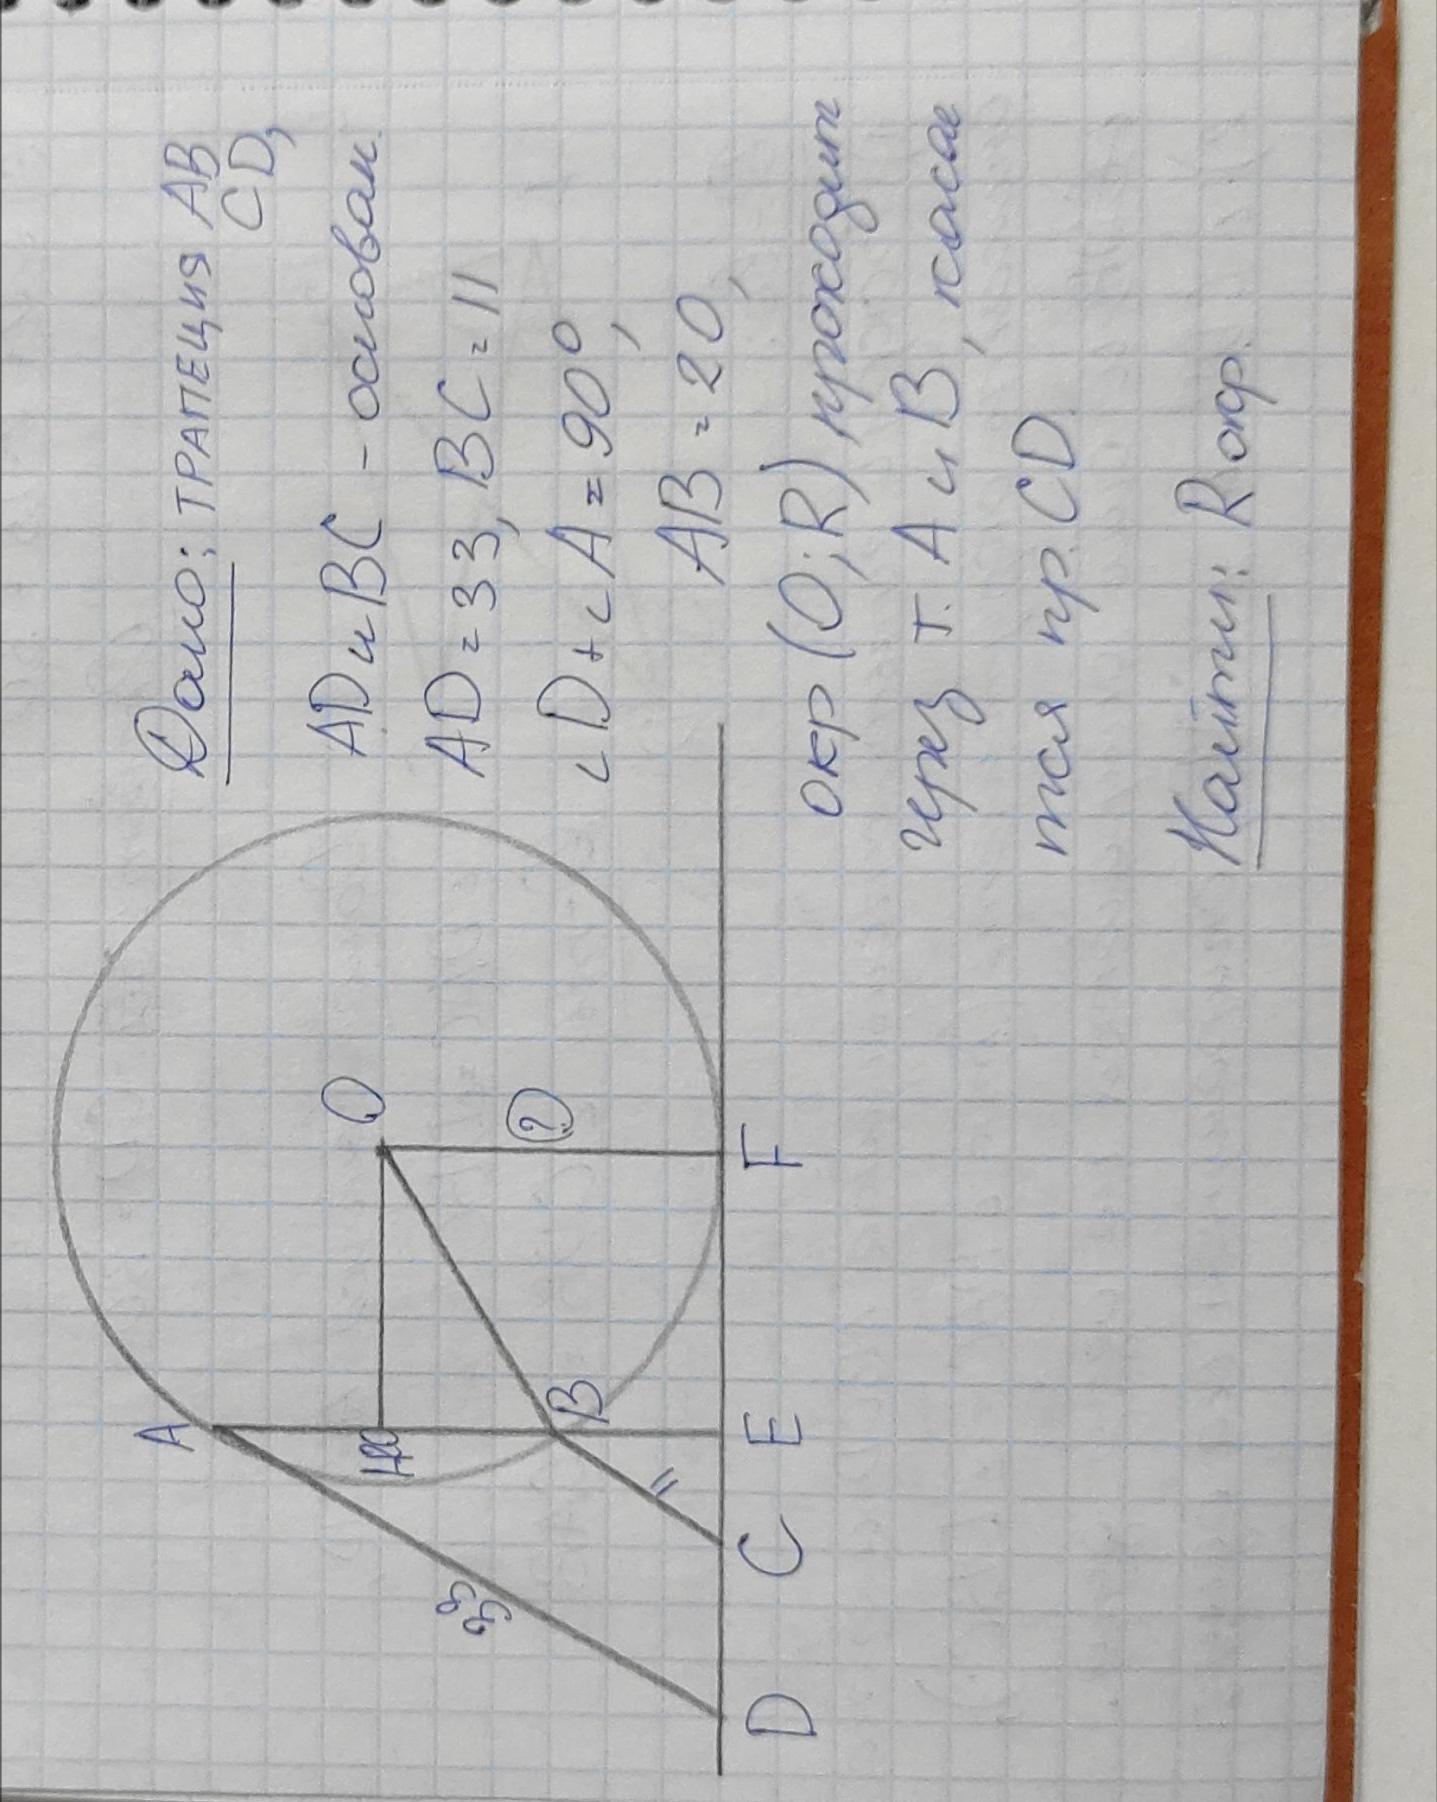 Дано: ТРАПЕЦИЯ AB
CD,
AD и BC - основан.
AD = 33, BC = 11
∟D + ∟A = 90°,
AB = 20,
окр (O; R) проходит
через т. A и B, касае
тся пр. CD.
Найти: R окр.
A
O
H
B
33
11
?
D
C
E
F